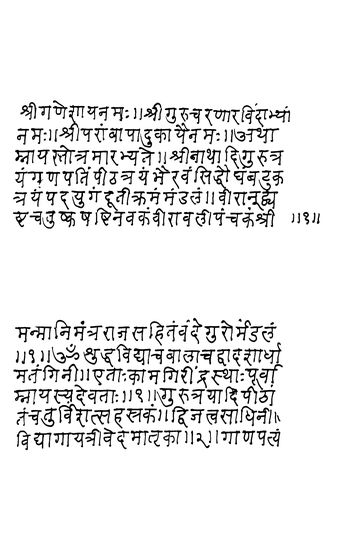 श्रीगणेशायनमः॥श्रीगुरुचरणारविंदाभ्यां
नमः॥श्रीपरांबापादुकायैनमः॥अथा
म्नायस्तोत्रमारभ्यते॥श्रीनाथादिगुरुत्र
यंगणपतिंपीठत्रयंभैरवंसिद्धौघंबटुक
त्रयंपदयुगंदूतीक्रमंमंडलं॥वीरान्द्व्य
ष्टचतुष्कषष्टिनवकंवीरावलीपंचकंश्री ॥१॥
मन्मानिमंत्रराजसहितंवंदेगुरोर्मंडलं
॥१॥ॐशुद्धविद्याचबालाचद्वादशार्धा
मतंगिनी॥एताःकामगिरींद्रस्थाःपूर्वा
म्नायस्यदेवताः॥१॥गुरुत्रयादिपीठां
तंचतुर्विंशत्सहस्त्रकं॥द्विजत्वसाधिनी॥
विद्यागायत्रीवेदमातृका॥२॥गाणपत्यं